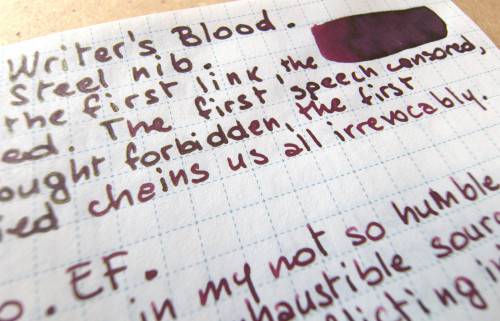 Writer's Blood.
Steel nib.
the first link, the
ed. The first speech censored,
ought forbidden, the first
ied cheins us all irrevocably.
o. EF.
in my not so humble
haustible sour
licting in